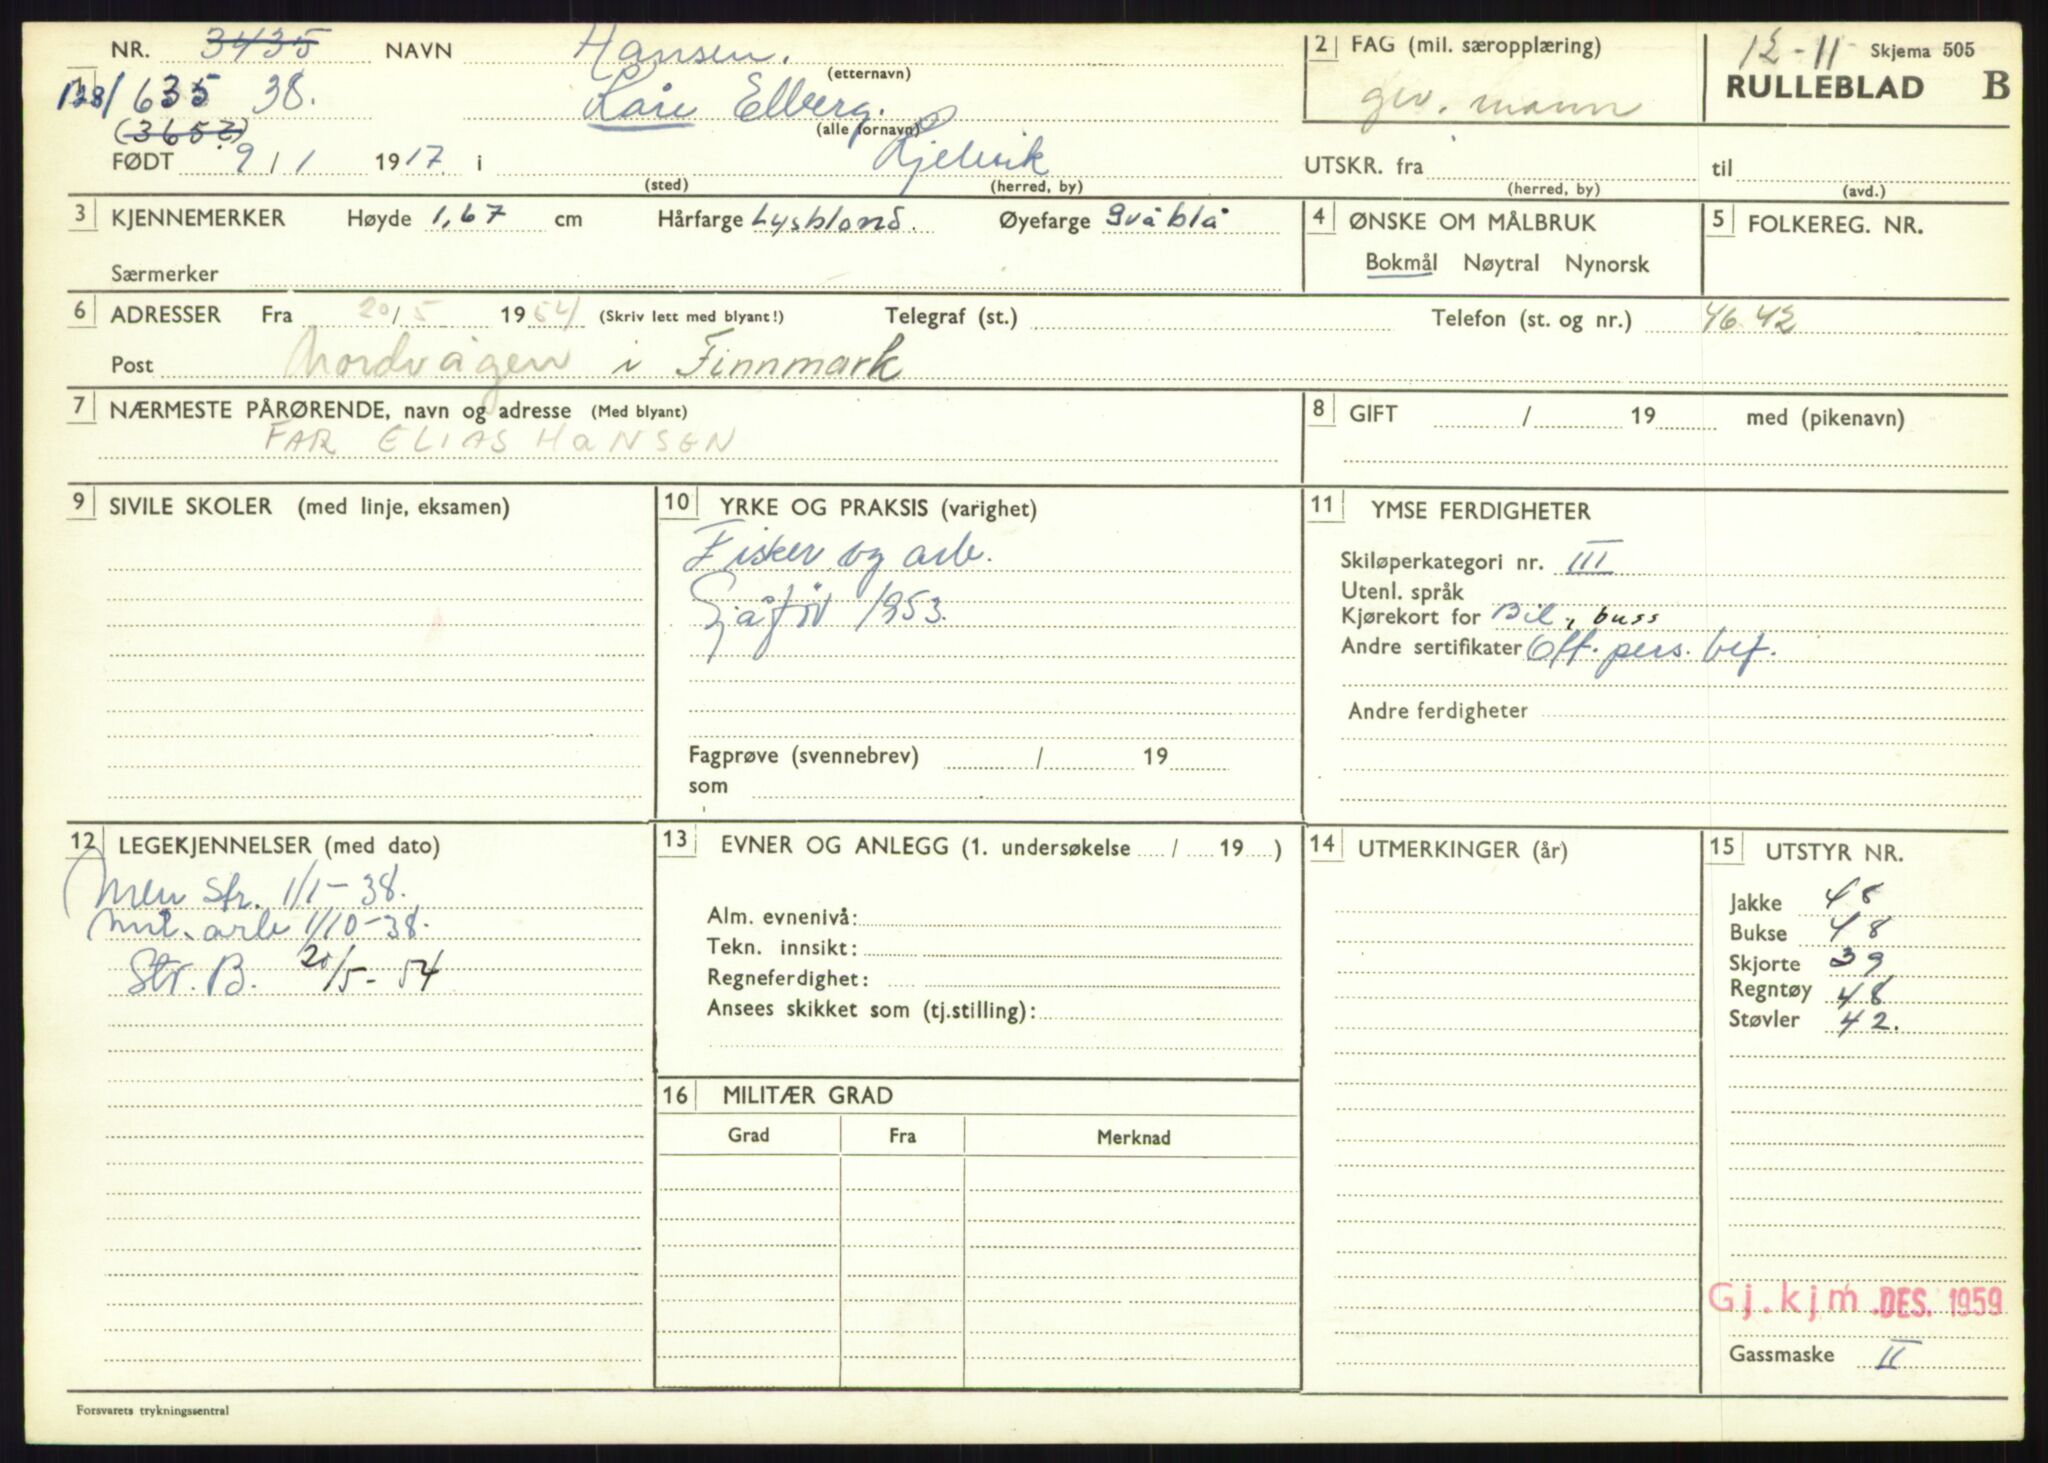 NR. 3435 NAVN Hansen. (etternavn)
138/635 38. Kåre Elberg. (alle fornavn)
(3652)
FØDT 9/1 1917 i Kjelvik
(sted) (herred, by)
2 FAG (mil. særopplæring)
gev. mann
12-11 Skjema 505
RULLEBLAD B
UTSKR. fra til
(herred, by) (avd.)
3 KJENNEMERKER Høyde 1,67 cm Hårfarge Lysblond. Øyefarge Gråblå
Særmerker
4 ØNSKE OM MÅLBRUK
Bokmål Nøytral Nynorsk
5 FOLKEREG. NR.
6 ADRESSER Fra 20/5 1954 (Skriv lett med blyant!) Telegraf (st.) Telefon (st. og nr.) 4642
Post Nordvågen i Finnmark
7 NÆRMESTE PÅRØRENDE, navn og adresse (Med blyant)
FAR ELIAS HANSEN
8 GIFT / 19 med (pikenavn)
9 SIVILE SKOLER (med linje, eksamen)
10 YRKE OG PRAKSIS (varighet)
Fisker og arb.
Sjåfør 1953.
Fagprøve (svennebrev) / 19
som
11 YMSE FERDIGHETER
Skiløperkategori nr. III
Utenl. språk
Kjørekort for Bil, buss
Andre sertifikater Off. pers. bef.
Andre ferdigheter
12 LEGEKJENNELSER (med dato)
(Men str. 1/1-38.
Mil. arb 1/10-38.
Str. B. 20/5-54
13 EVNER OG ANLEGG (1. undersøkelse / 19 )
Alm. evnenivå:
Tekn. innsikt:
Regneferdighet:
Ansees skikket som (tj.stilling):
14 UTMERKINGER (år)
15 UTSTYR NR.
Jakke 48
Bukse 48
Skjorte 39
Regntøy 48
Støvler 42.
16 MILITÆR GRAD
Grad Fra Merknad
Gj.kjm. DES. 1959
Gassmaske II
Forsvarets trykningssentral